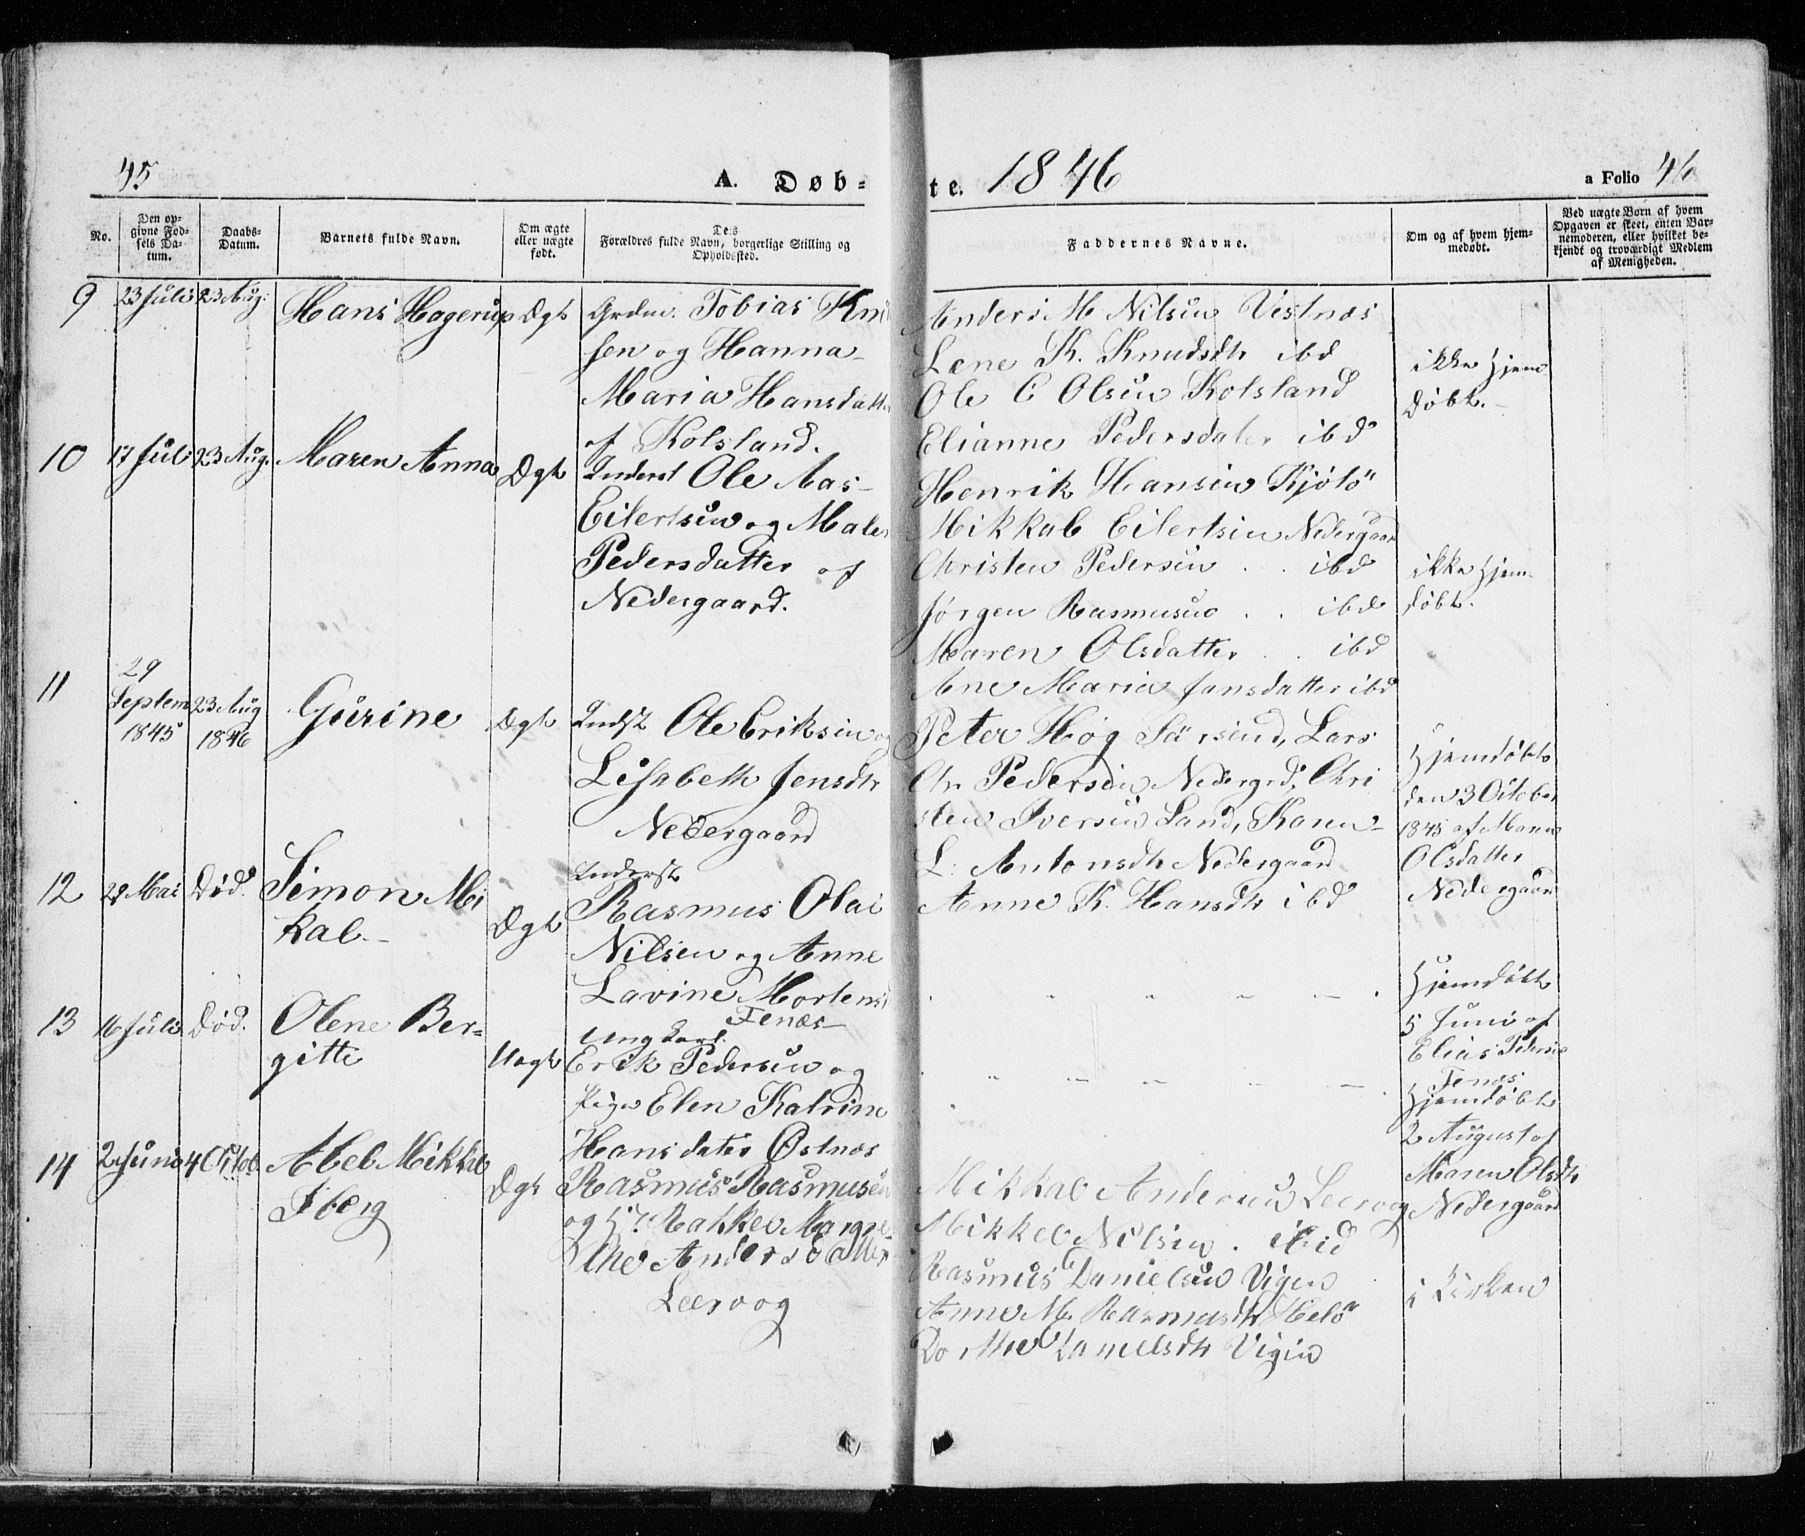 45
A. Døb-
te. 1846
a Folio 46
No.
Den op-
givne Fød-
sels Da-
tum.
Daabs-
Datum.
Barnets fulde Navn.
Om ægte
eller uægte
født.
De:s
Forældres fulde Navn, borgerlige Stilling og
Opholdssted.
Faddernes Navne.
Om og af hvem hjem-
medøbt.
Ved uægte Børn af hvem
Opgaven er skeet, enten Bar-
nemoderen, eller hvilket be-
kjendt og troværdigt Medlem
af Menigheden.
9
23 Juli
23 Aug.
Hans Hagerup
Ægt
Grdm. Tobias
sen og Hanna
Maria Hansdatter
af Kolsland.
Anders M Nilsen Vestnæs
Lene K. Knudsdtr ibd
Ole C Olsen Kolsland
Elianne Pedersdater ibd
Henrik Hansen Kjøtö
ikke hjem
døbt.
10
17 Juli
23 Aug.
Maren Anna
Ægt
Inderst Ole Aas
Eilertsen og Malen
Pedersdatter af
Nedergaard.
Mikkal Eilertsen Nedergaar
Christen Pedersen . . ibd
Jørgen Rasmusen . . ibd
Maren Olsdatter . . ibd
Ane Maria Jansdatter ibd
ikke hjem-
døbt.
11
29
Septem
1845
23 Aug
1846
Gurine
Ægt
Indst Ole Eriksen og
Lisabeth Jensdtr
Nedergaard
Peter Høg Sörsand, Lars
Chr Pedersen Nedergrd, Chri
sten Iversen Sand, Karen
L. Antonsdtr Nedergaard
Anne K. Hansdtr ibd
Hjemdøbt
den 3 October
1845 af Maren
Olsdatter
Nedergaard
12
28 Mai
Død.
Simon Mi
kal.
Ægt
Inderst
Rasmus Olai
Nilsen og Anne
Lavine Mortens
Fenæs
Hjemdøbt
5 Juni af
Elias Peders
Fenæs
13
16 Juli
Død.
Olene Ber-
gitte
Uægt
Ungkarl
Erik Pedersen og
Pige Elen Katrine
Hansdater Østnæs
Hjemdøbt
2 August af
Maren Olsdtr
Nedergaard
14
2 Juni
4 Octob.
Abel Mikkel
Iberg
Ægt
Rasmus Rasmusen
og H. Rakkel Margre
the Andersdatter
Leervog
Mikkal Andersen Leervog
Mikkel Nilsen . ibid
Rasmus Danielsen Vigen
Anne M. Rasmusdtr Helö
Dorthe Danielsdtr Vigen
i Kirken